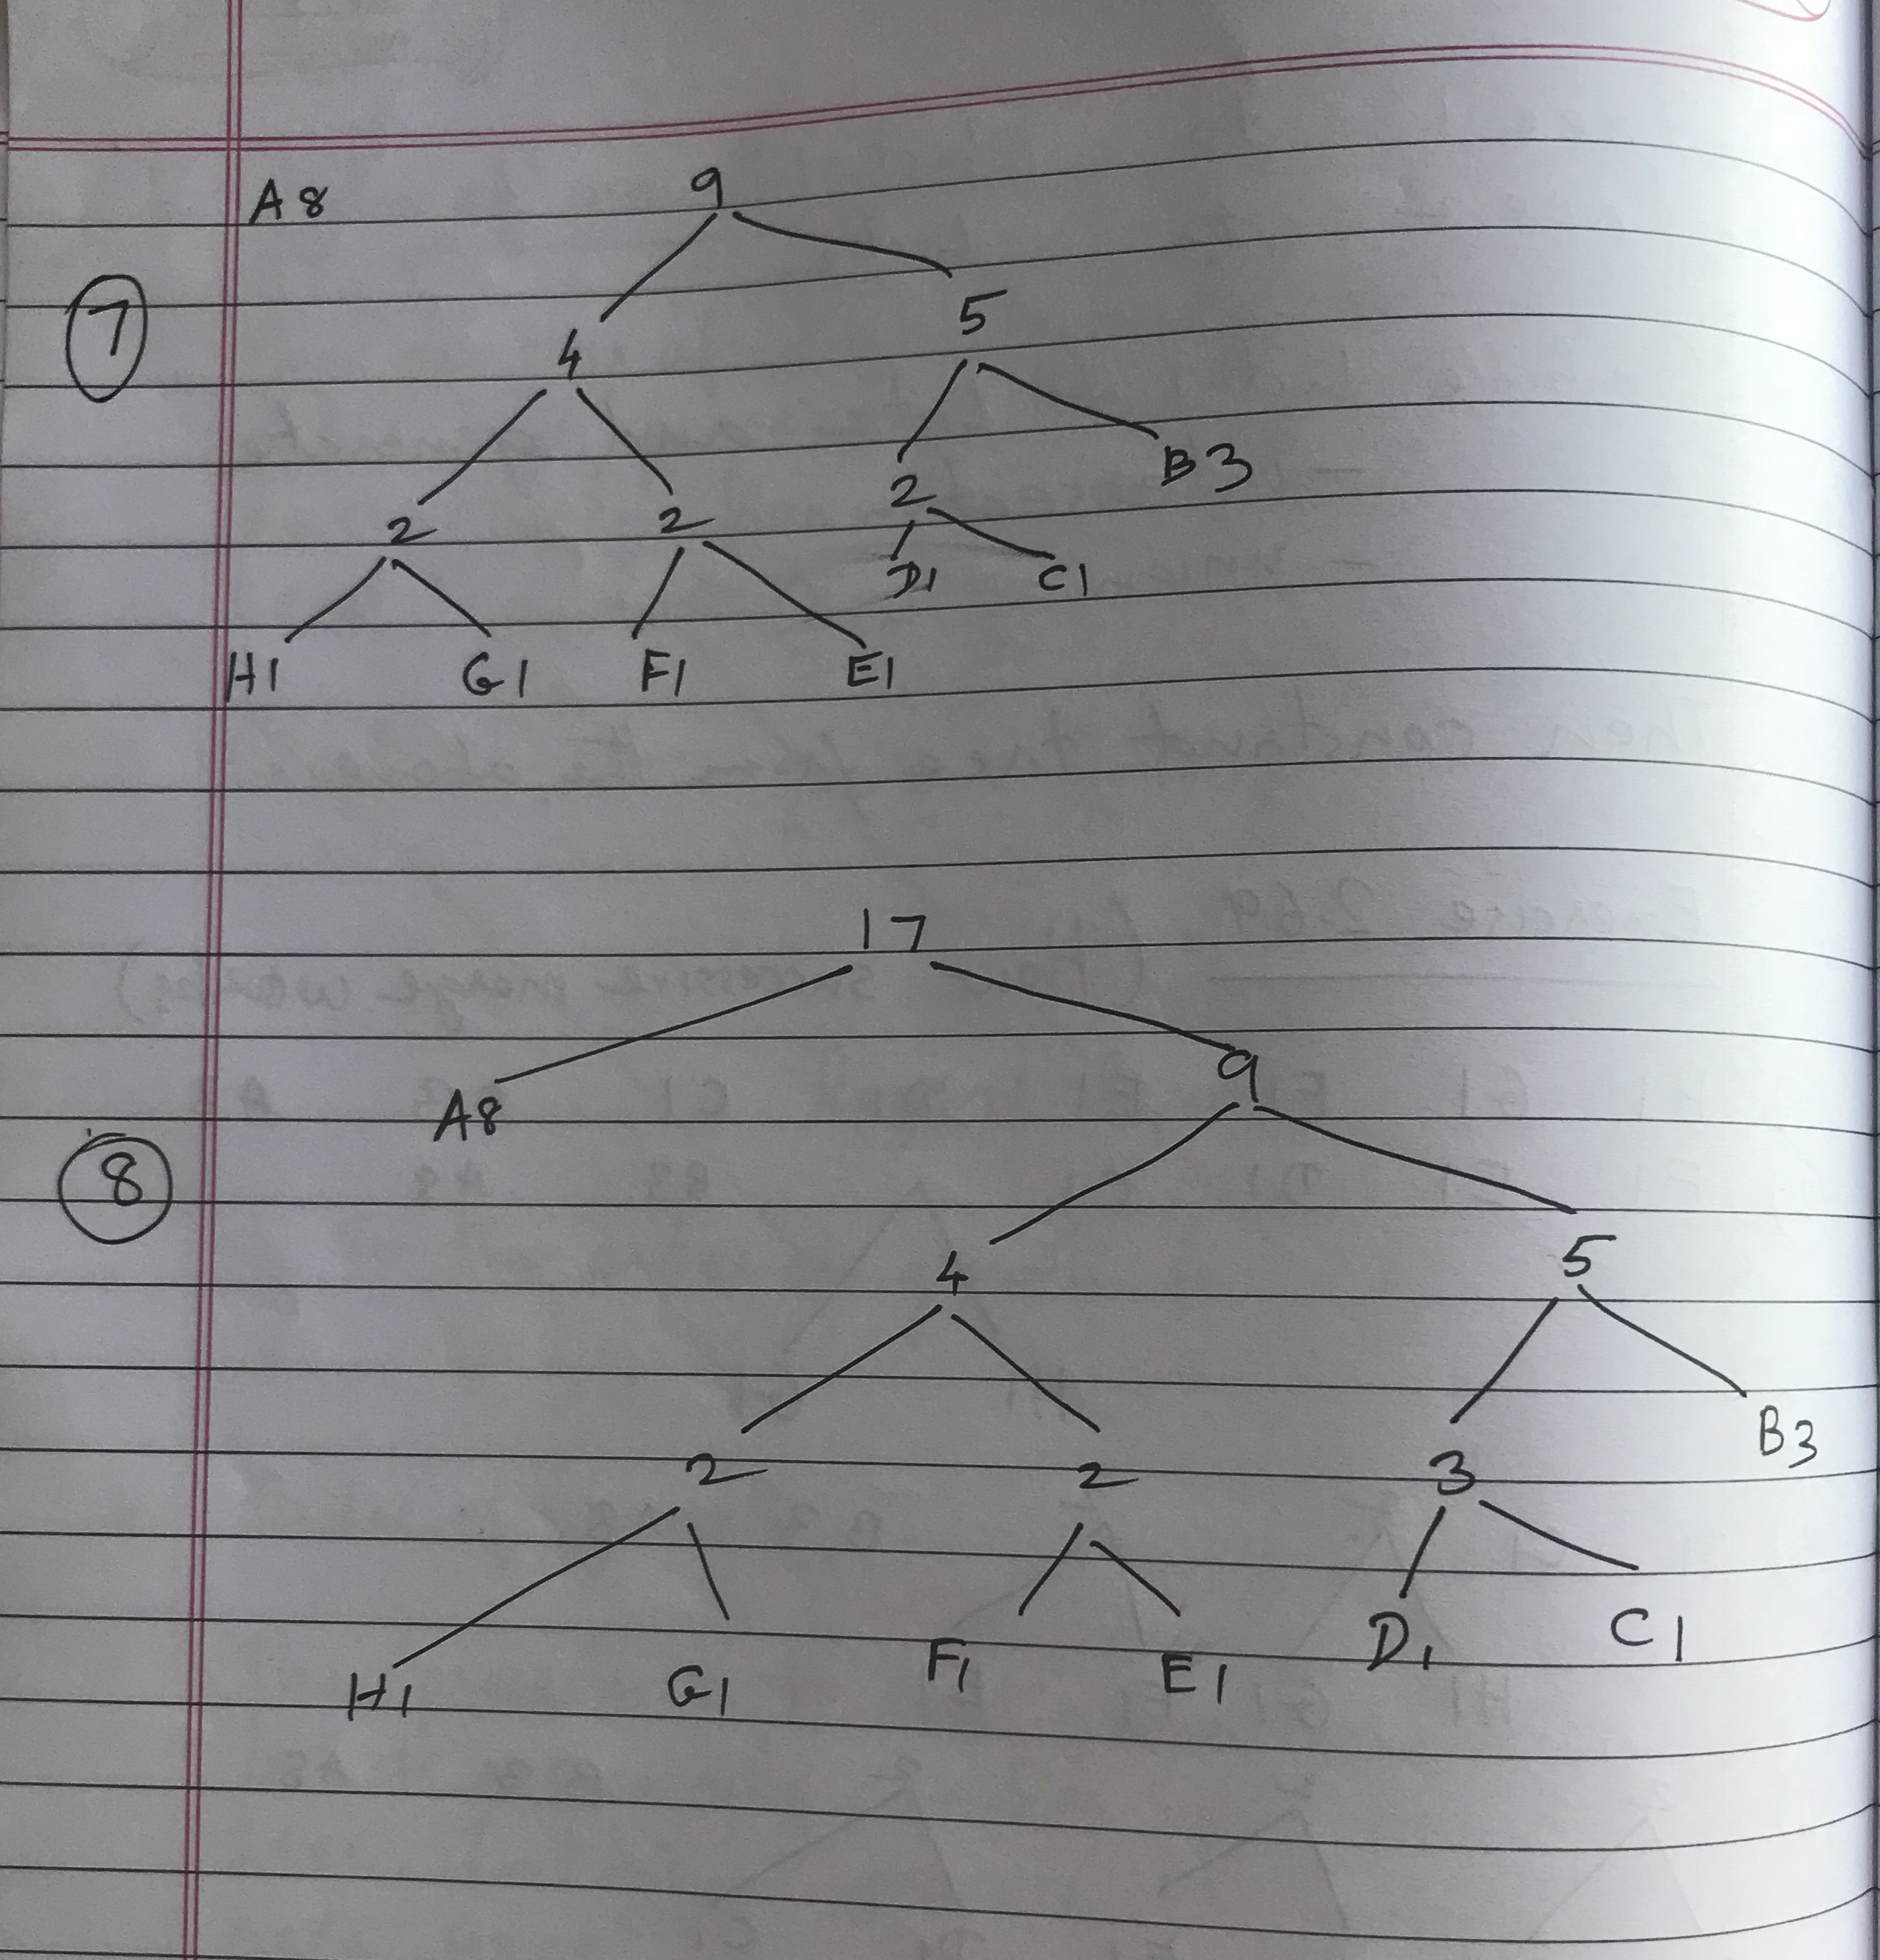 A8 9
7
4 5
2 2 2 B3
D1 C1
H1 G1 F1 E1
17
A8 9
8
4 5
2 2 3 B3
H1 G1 F1 E1 D1 C1